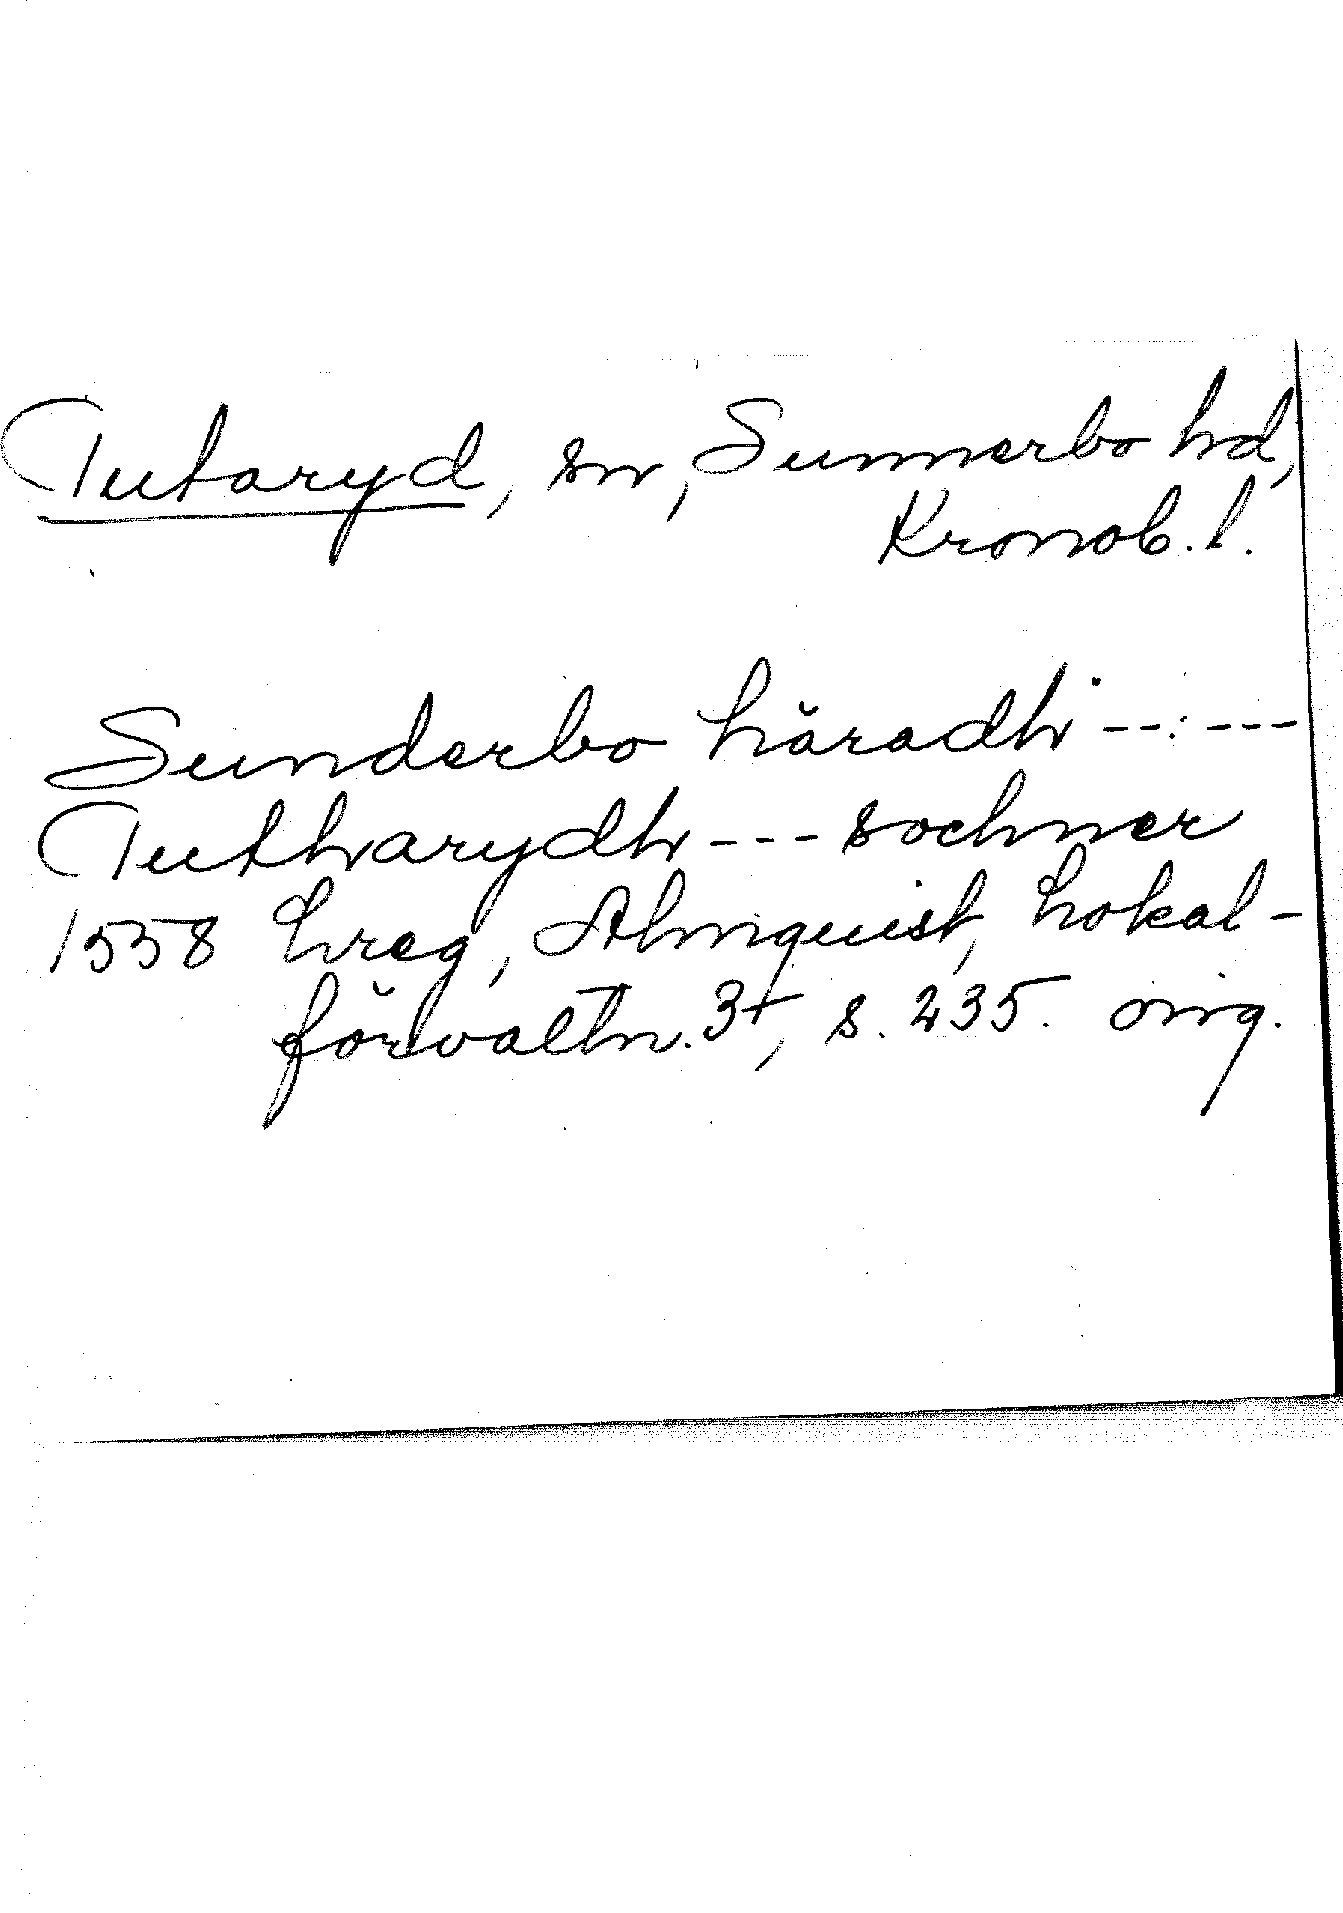 Tutaryd, sn, Sunnerbo hd,
Kronob. l.
Sunderbo häradh ------
Tutharydh --- sochner
1558 hreg, Almquist, Lokal-
förvaltn. 3+, s. 235. orig.